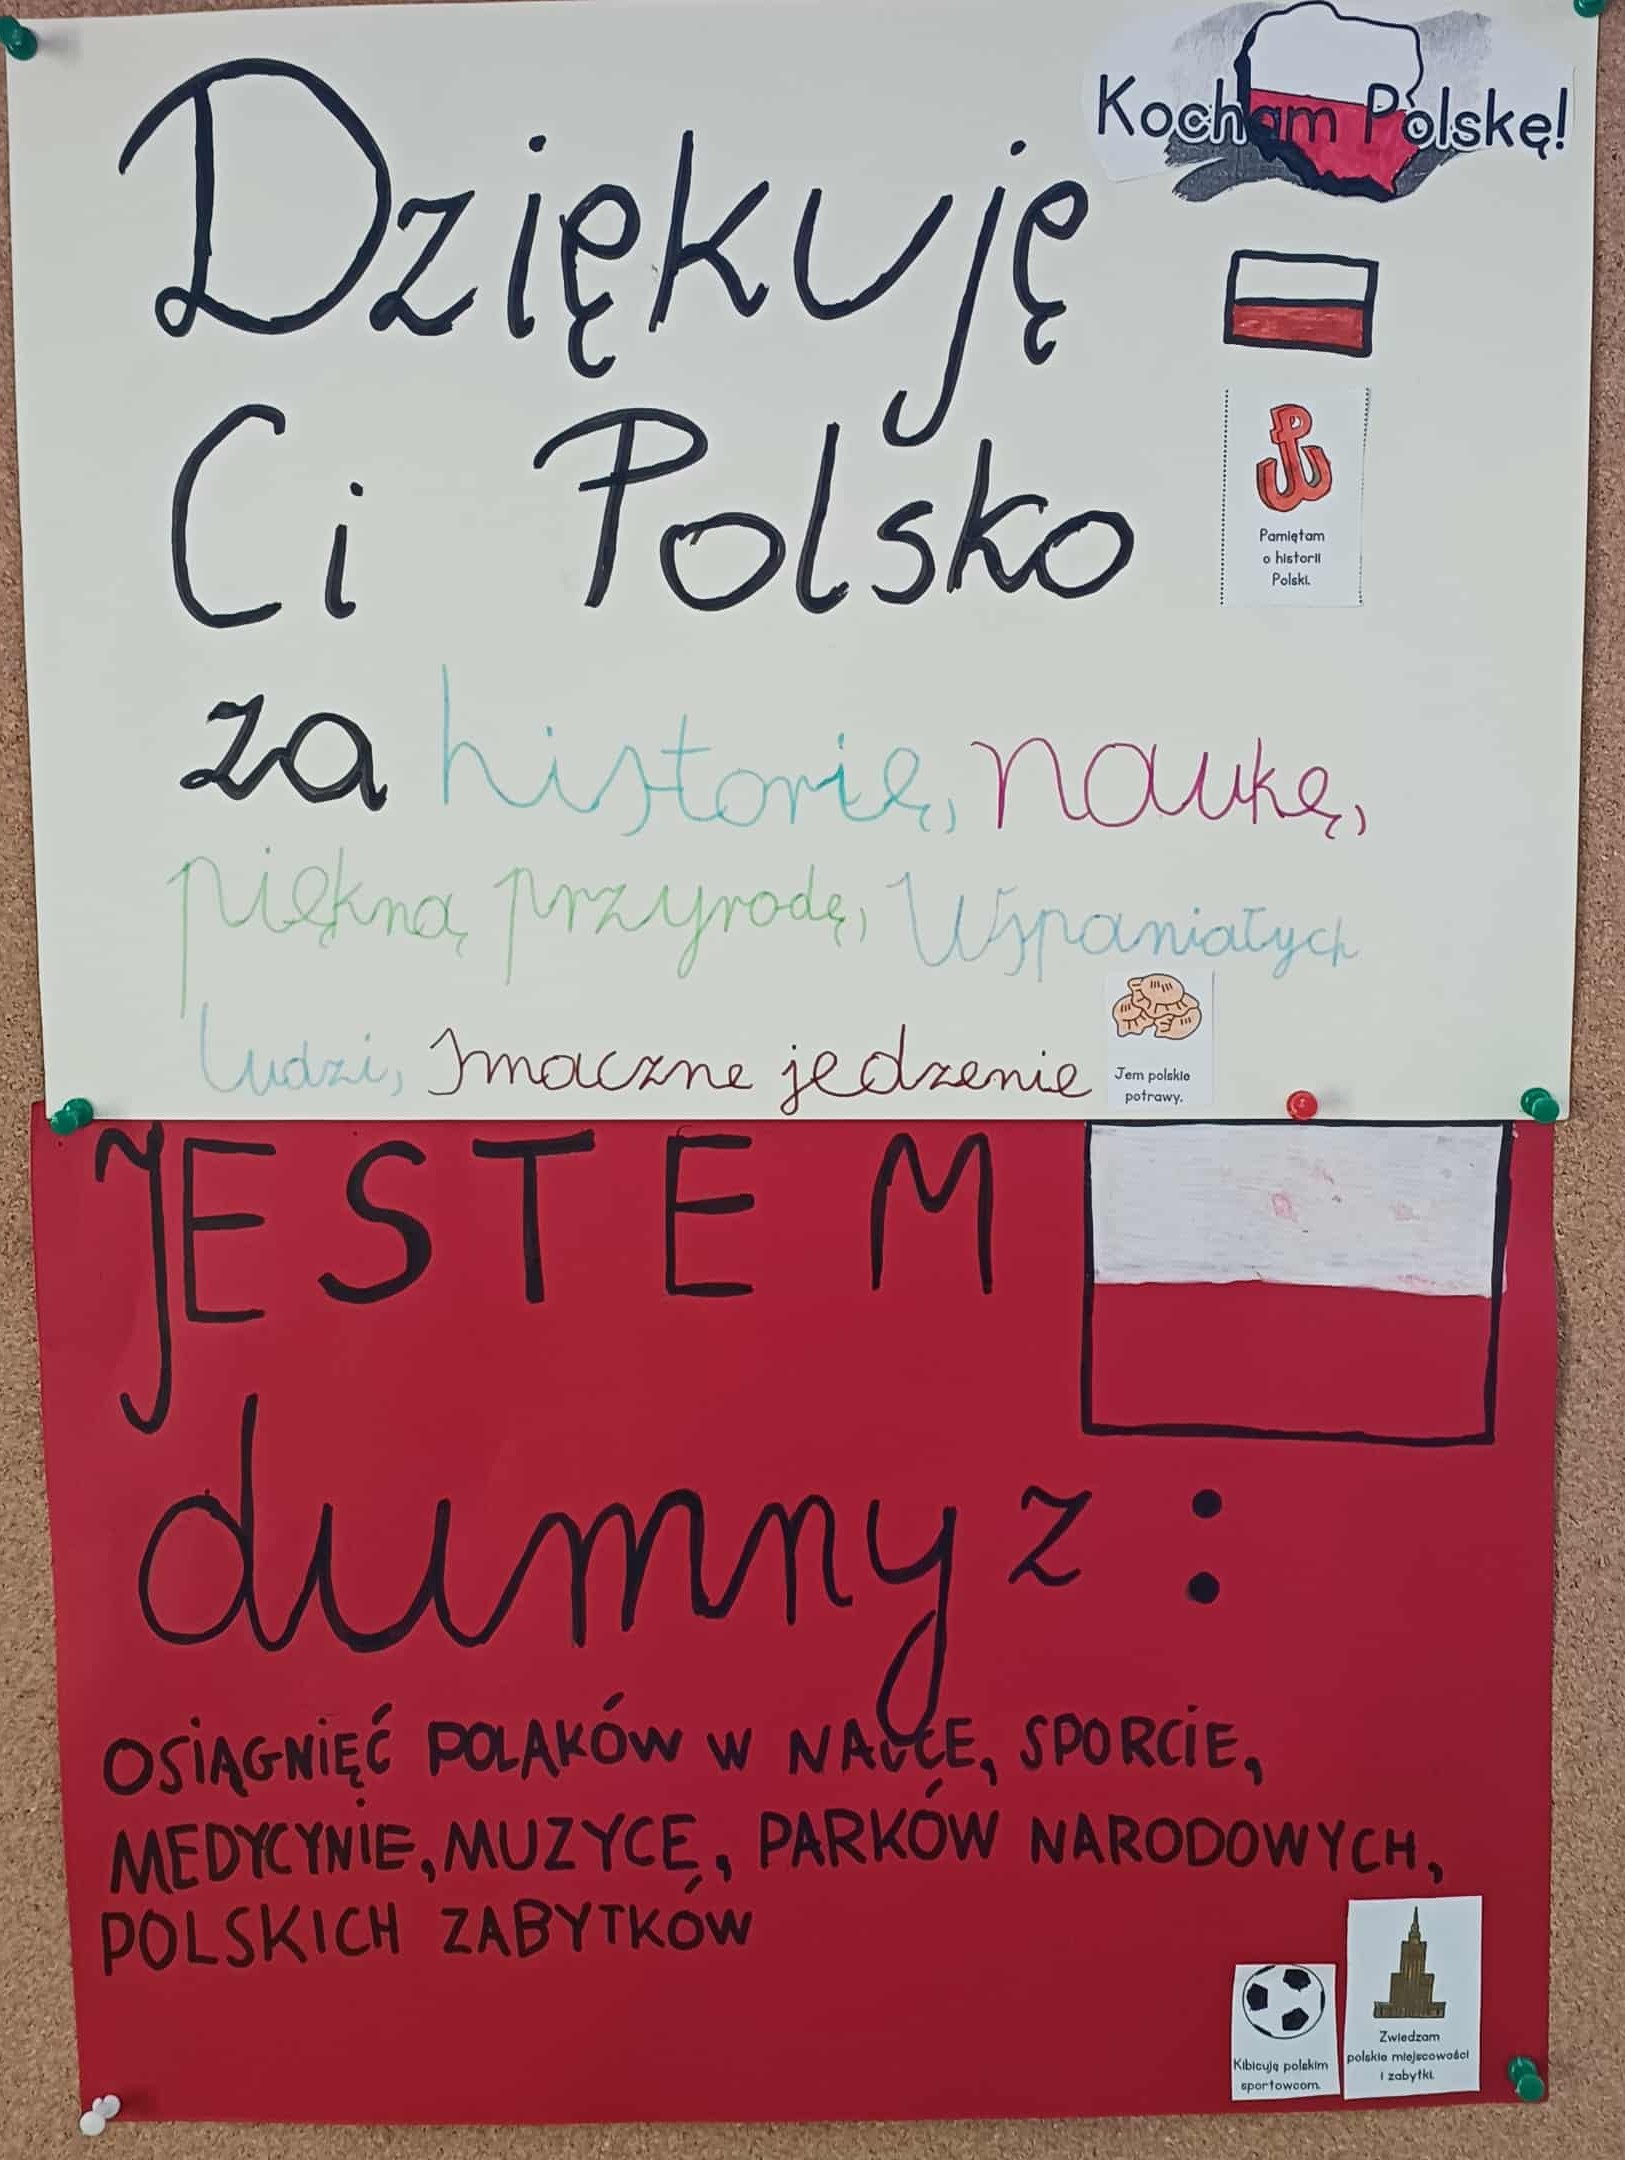 Kocham Polskę!
Dziękuję
Ci Polsko
Pamiętam
o historii
Polski.
za historię, naukę,
piękną przyrodę, Wspaniałych
ludzi, smaczne jedzenie
Jem polskie
potrawy.
JESTEM
dumny z :
OSIĄGNIĘĆ POLAKÓW W NAUCE, SPORCIE,
MEDYCYNIE, MUZYCE, PARKÓW NARODOWYCH,
POLSKICH ZABYTKÓW
Kibicuję polskim
sportowcom.
Zwiedzam
polskie miejscowości
i zabytki.